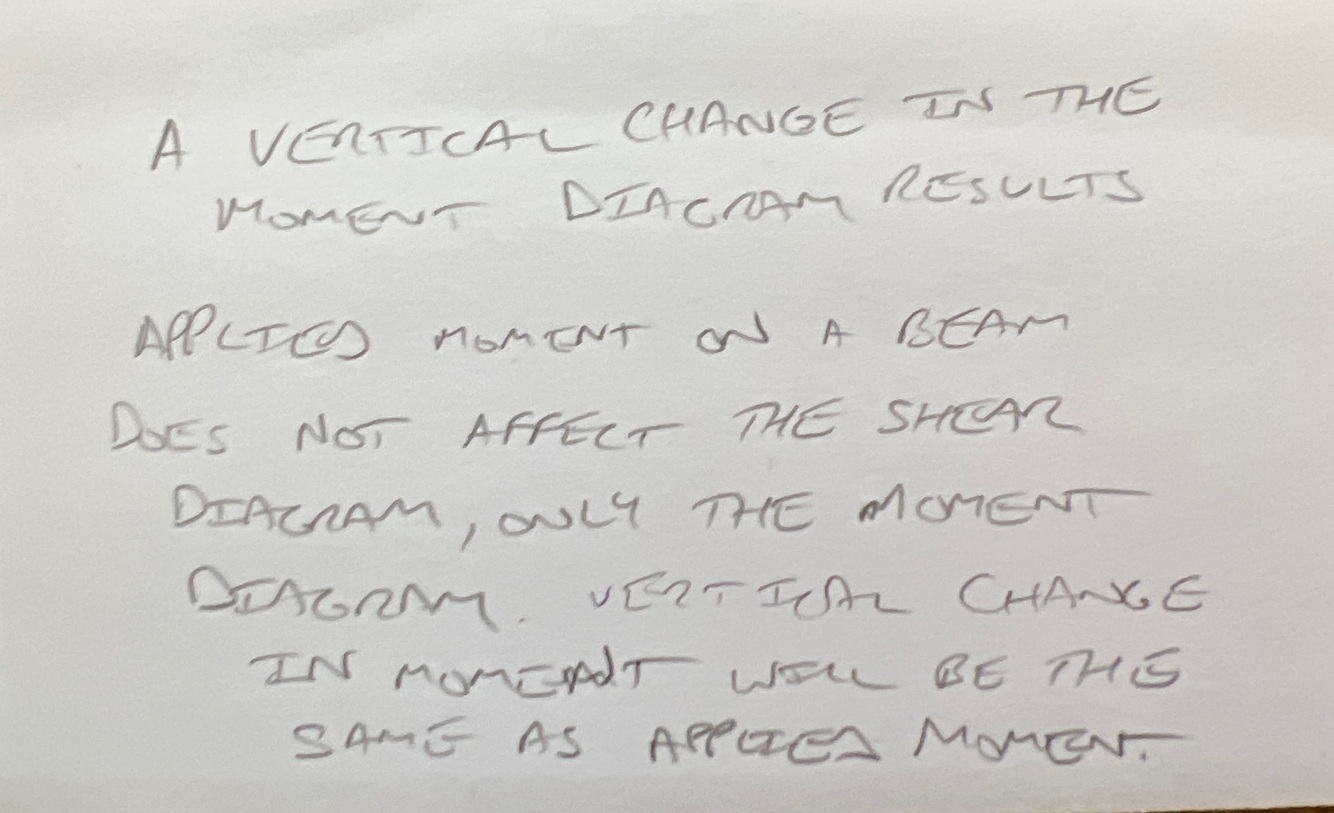 A VERTICAL CHANGE IN THE
MOMENT DIAGRAM RESULTS
APPLIED MOMENT ON A BEAM
DOES NOT AFFECT THE SHEAR
DIAGRAM, ONLY THE MOMENT
DIAGRAM. VERTICAL CHANGE
IN MOMENT WILL BE THE
SAME AS APPLIED MOMENT.